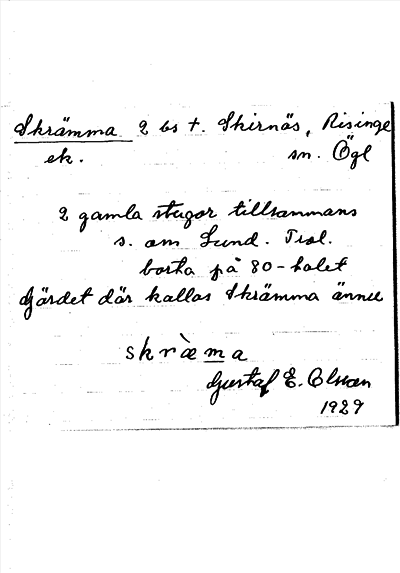 Skrämma 2 bs t. Skirnäs, Risinge
ek. sn. Ögl
2 gamla stugor tillsammans
s. om Lund. Trol.
borta på 80-talet
Gärdet där kallas Skrämma ännu
skræ̀ma
Gustaf E. Olsson
1929